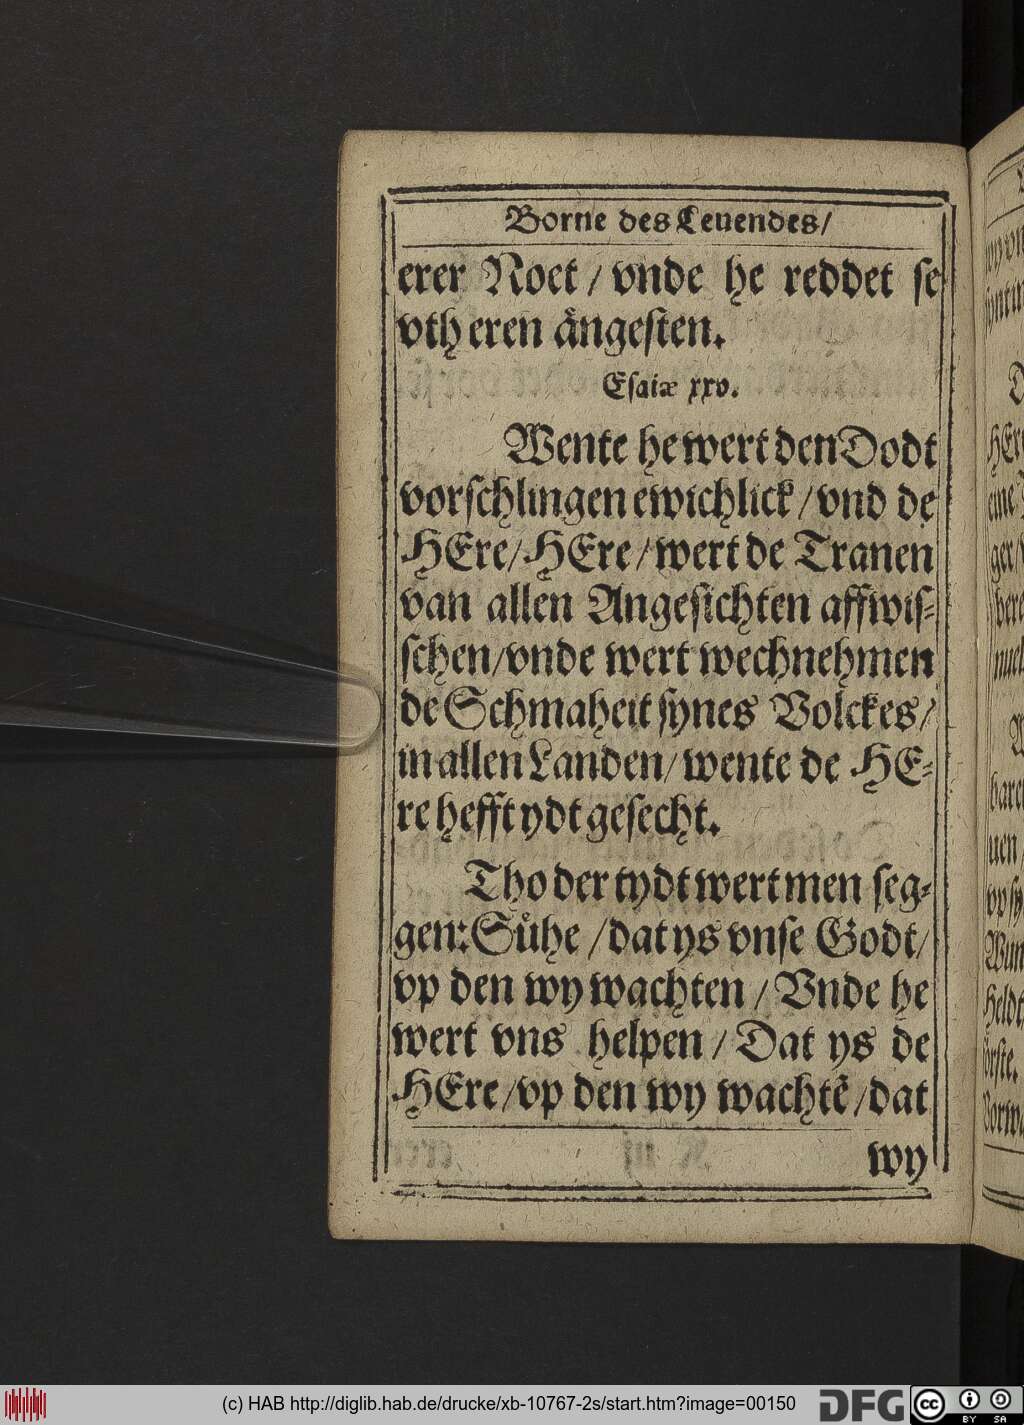 Borne des Leuendes/
erer Noet / vnde he reddet se
vth eren ångesten.
Esaiæ xxv.
Wente he wert den Dodt
vorschlingen ewichlick / vnd de
HEre/ HEre / wert de Tranen
van allen Angesichten affwis-
schen/vnde wert wechnehmen
de Schmaheit synes Volckes/
in allen Landen/ wente de HE-
re hefft ydt gesecht.
Tho der tydt wert men seg-
gen: Sůhe / dat ys vnse Godt/
vp den wy wachten / Vnde he
wert vns helpen / Dat ys de
HEre /vp den wy wachtẽ /dat
wy
(c) HAB http://diglib.hab.de/drucke/xb-10767-2s/start.htm?image=00150
DFG
cc
BY SA